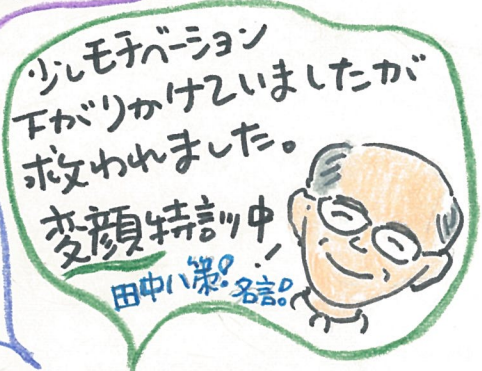 少しモチベーション
下がりかけていましたが
救われました。
変顔特訓中!
田中八策!名言!